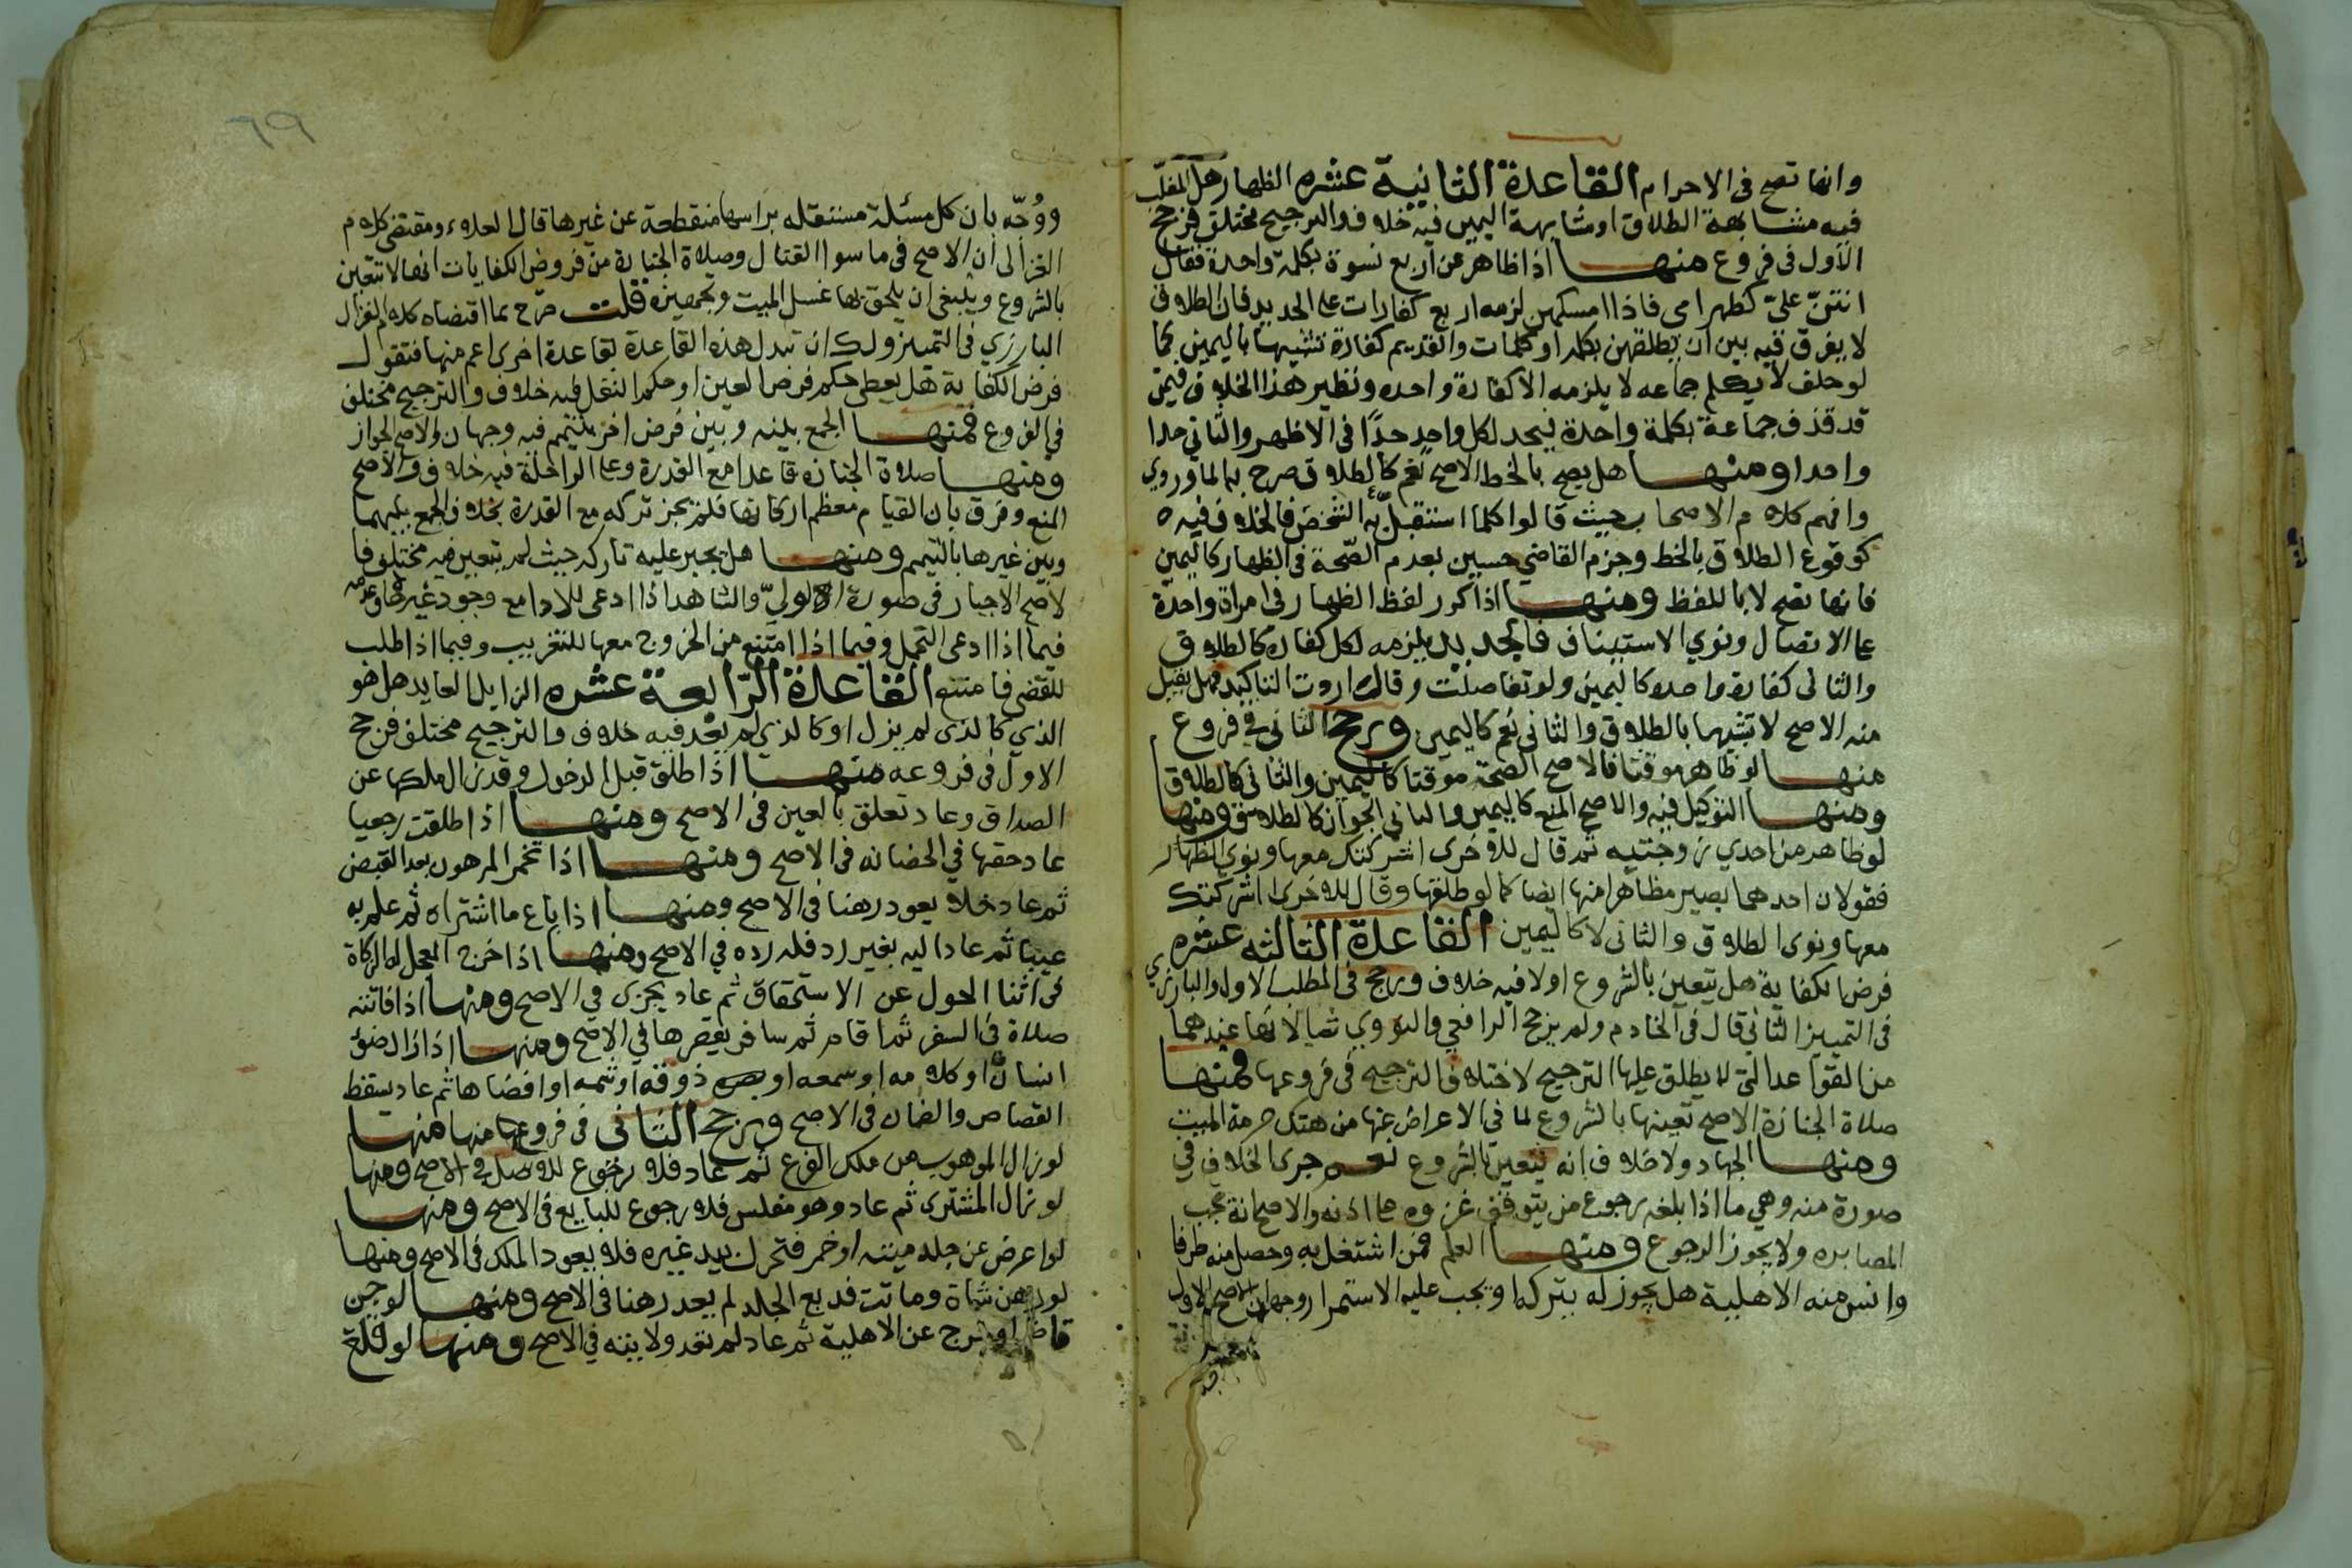 وانها تصح في الاحرام القاعدة الثانية عشره الظهار هل المغلب
فيه مشابهة الطلاق او مشابهة اليمين فيه خلاف والترجيح مختلق فرجح
الاول في فروع منها اذا ظاهر من اربع نسوة بكلمة واحدة فقال
انتن علي كظهر امي فاذا امسكهن لزمه اربع كفارات على الجديد فان الطلاق
لا يفرق فيه بين ان يطلقهن بكلمة او كلمات والقديم كفارة تشبيها باليمين كما
لو حلف لا يكلم جماعه لا يلزمه الا كفارة واحده ونظير هذا الخلاف فيمن
قد قذف جماعة بكلمة واحدة فيحد لكل واحد حدا في الاظهر والثاني حدا
واحدا ومنها هل يصح بالخط الاصح نعم كالطلاق صرح به الماوردي
وافهم كلام الاصحاب حيث قالوا كلما استقل به الشخص فالخلاف فيه
كوقوع الطلاق بالخط وجزم القاضي حسين بعدم الصحة في الظهار كاليمين
فانها تصح لا باللفظ ومنها اذا كرر لفظ الظهار في امراة واحدة
على الاتصال ونوي الاستيناف فالجديد يلزمه لكل كفاره كالطلاق
والثاني كفارة واحده كاليمين ولو تفاصلت وقال اردت التاكيد فهل يقبل
منه الاصح لا تشبيها بالطلاق والثاني نعم كاليمين ورجح الثاني في فروع
منها لو ظاهر موقتا فالاصح الصحة موقتا كاليمين والثاني كالطلاق
ومنها التوكيل فيه والاصح المنع كاليمين والثاني الجواز كالطلاق ومنها
لو ظاهر من احدي زوجتيه ثم قال للاخرى اشركتك معها ونوى الظهار
فقولان احدهما يصير مظاهرا منها ايضا كما لو طلقها وقال للاخرى اشركتك
معها ونوى الطلاق والثاني لا كاليمين القاعدة الثالثه عشره
فرض الكفاية هل يتعين بالشروع اولا فيه خلاف ورجح في المطلب الاول والبارزي
في التمييز الثاني قال في الخادم ولم يرجح الرافعي والنووي شيا لانها عندهما
من القواعد التي لا يطلق عليها الترجيح لاختلاف الترجيح في فروعها فمنها
صلاة الجنازة الاصح تعينها بالشروع لما في الاعراض عنها من هتك حرمة الميت
ومنها الجهاد ولا خلاف انه يتعين بالشروع نعم جرى الخلاف في
صورة منه وهي ما اذا بلغه رجوع من يتوقف غزوه على اذنه والاصح انه تجب
المصابره ولا يجوز الرجوع ومنها العلم فمن اشتغل به وحصل منه طرفا
وانس منه الاهلية هل يجوز له تركه او يجب عليه الاستمرار وجهان الاصح الاول
ووجه بان كل مسئلة مستقله براسها منقطعة عن غيرها قال العلاء ومقتضى كلام
الغزالى ان الاصح في ما سوا القتال وصلاة الجنازة من فروض الكفايات انها لا تتعين
بالشروع وينبغي ان يلحق بها غسل الميت وتجهيزه قلت صرح بما اقتضاه كلام الغزالى
البارزي في التمييز ولك ان تبدل هذه القاعدة بقاعدة اخرى اعم منها فتقول
فرض الكفاية هل يعطى حكم فرض العين او حكم النفل فيه خلاف والترجيح مختلف
في الفروع فمنها الجمع بينه وبين فرض اخر بتيمم فيه وجهان والاصح الجواز
ومنها صلاة الجنازه قاعدا مع القدرة وعلى الراحلة فيه خلاف والاصح
المنع وفرق بان القيام معظم اركانها فلم يجز تركه مع القدرة بخلاف الجمع بينهما
وبين غيرها بالتيمم ومنها هل يجبر عليه تاركه حيث لم يتعين فيه مختلف فا
لاصح الاجبار في صورة الولي والشاهد اذا ادعى للادا مع وجود غيره
فيما اذا ادعى التحمل وفيما اذا امتنع من الخروج معها للتغريب وفيما اذا طلب
للقضى فامتنع القاعدة الرابعة عشره الزايل العايد هل هو
الذي كالذى لم يزل او كالذي لم يعد فيه خلاف والترجيح مختلف فرجح
الاول في فروعه منها اذا طلق قبل الدخول وقد زال ملكها عن
الصداق وعاد تعلق بالعين في الاصح ومنها اذا طلقت رجعيا
عاد حقها في الحضانه في الاصح ومنها اذا تخمر المرهون بعد القبض
ثم عاد خلا يعود رهنا في الاصح ومنها اذا باع ما اشتراه ثم علم به
عيبا ثم عاد اليه بغير رد فله رده في الاصح ومنها اذا خرج المعجل له الزكاة
في اثنا الحول عن الاستحقاق ثم عاد يجزى في الاصح ومنها اذا فاتته
صلاة في السفر ثم اقام ثم سافر يقصرها في الاصح ومنها اذا زال ضوء
انسان او كلامه او سمعه او ذوقه او شمه او افضاها ثم عاد يسقط
القصاص والضمان في الاصح ورجح الثاني في فروع منها منها
لو زال الموهوب من ملك الفرع ثم عاد فلا رجوع للاصل في الاصح ومنها
لو زال المشترى ثم عاد وهو مفلس فلا رجوع للبايع في الاصح ومنها
لو اعرض عن جلد ميتته او خمر فتحول بيد غيره فلا يعود الملك في الاصح ومنها
لو رهن شاة وماتت فدبغ الجلد لم يعد رهنا في الاصح ومنها لو جن
قاض او خرج عن الاهلية ثم عاد لم تعد ولايته في الاصح ومنها لو قلع